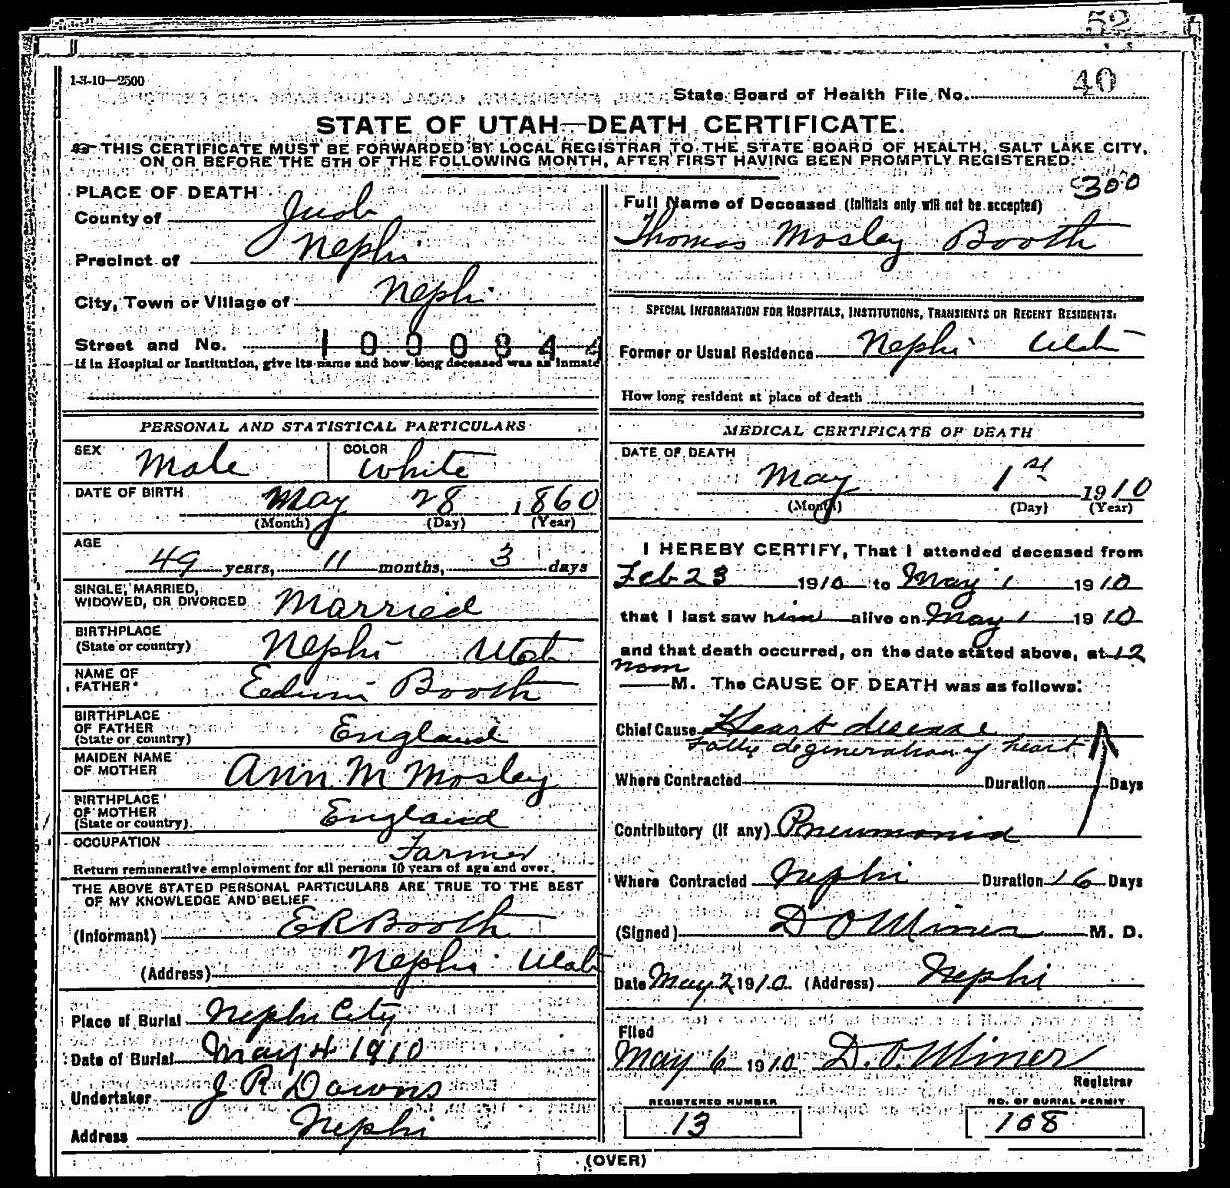 52
1-3-10—2500
40
State Board of Health File No.
STATE OF UTAH—DEATH CERTIFICATE.
THIS CERTIFICATE MUST BE FORWARDED BY LOCAL REGISTRAR TO THE STATE BOARD OF HEALTH, SALT LAKE CITY,
ON OR BEFORE THE 5TH OF THE FOLLOWING MONTH, AFTER FIRST HAVING BEEN PROMPTLY REGISTERED.
PLACE OF DEATH
County of Juab
Precinct of Nephi
City, Town or Village of Nephi
Street and No. 1000844
If in Hospital or Institution, give its name and how long deceased was an inmate
PERSONAL AND STATISTICAL PARTICULARS
SEX Male COLOR White
DATE OF BIRTH May 28, 1860
(Month) (Day) (Year)
AGE
49 years, 11 months, 3 days
SINGLE, MARRIED,
WIDOWED, OR DIVORCED Married
BIRTHPLACE
(State or country) Nephi Utah
NAME OF
FATHER Edwin Booth
BIRTHPLACE
OF FATHER
(State or country) England
MAIDEN NAME
OF MOTHER Ann M Mosley
BIRTHPLACE
OF MOTHER
(State or country). England
OCCUPATION Farmer
Return remunerative employment for all persons 10 years of age and over.
THE ABOVE STATED PERSONAL PARTICULARS ARE TRUE TO THE BEST
OF MY KNOWLEDGE AND BELIEF
(Informant) E R Booth
(Address) Nephi Utah
Place of Burial Nephi City
Date of Burial May 4 1910
Undertaker J R Downs
Address Nephi
300
Full Name of Deceased (Initials only will not be accepted)
Thomas Mosley Booth
SPECIAL INFORMATION FOR HOSPITALS, INSTITUTIONS, TRANSIENTS OR RECENT RESIDENTS:
Former or Usual Residence Nephi Utah
How long resident at place of death
MEDICAL CERTIFICATE OF DEATH
DATE OF DEATH
May 1st 1910
(Month) (Day) (Year)
I HEREBY CERTIFY, That I attended deceased from
Feb 23 1910 to May 1 1910
that I last saw him alive on May 1 1910
and that death occurred, on the date stated above, at 12
noon
M. The CAUSE OF DEATH was as follows:
Chief Cause Heart desease
Fatty degeneration of heart
Where Contracted Duration Days
Contributory (If any) Pneumonia
Where Contracted Nephi Duration 16 Days
(Signed) D O Miner M. D.
Date May 2 1910. (Address) Nephi
Filed
May 6 1910 D. O. Miner
Registrar
REGISTERED NUMBER NO. OF BURIAL PERMIT
13 168
(OVER)